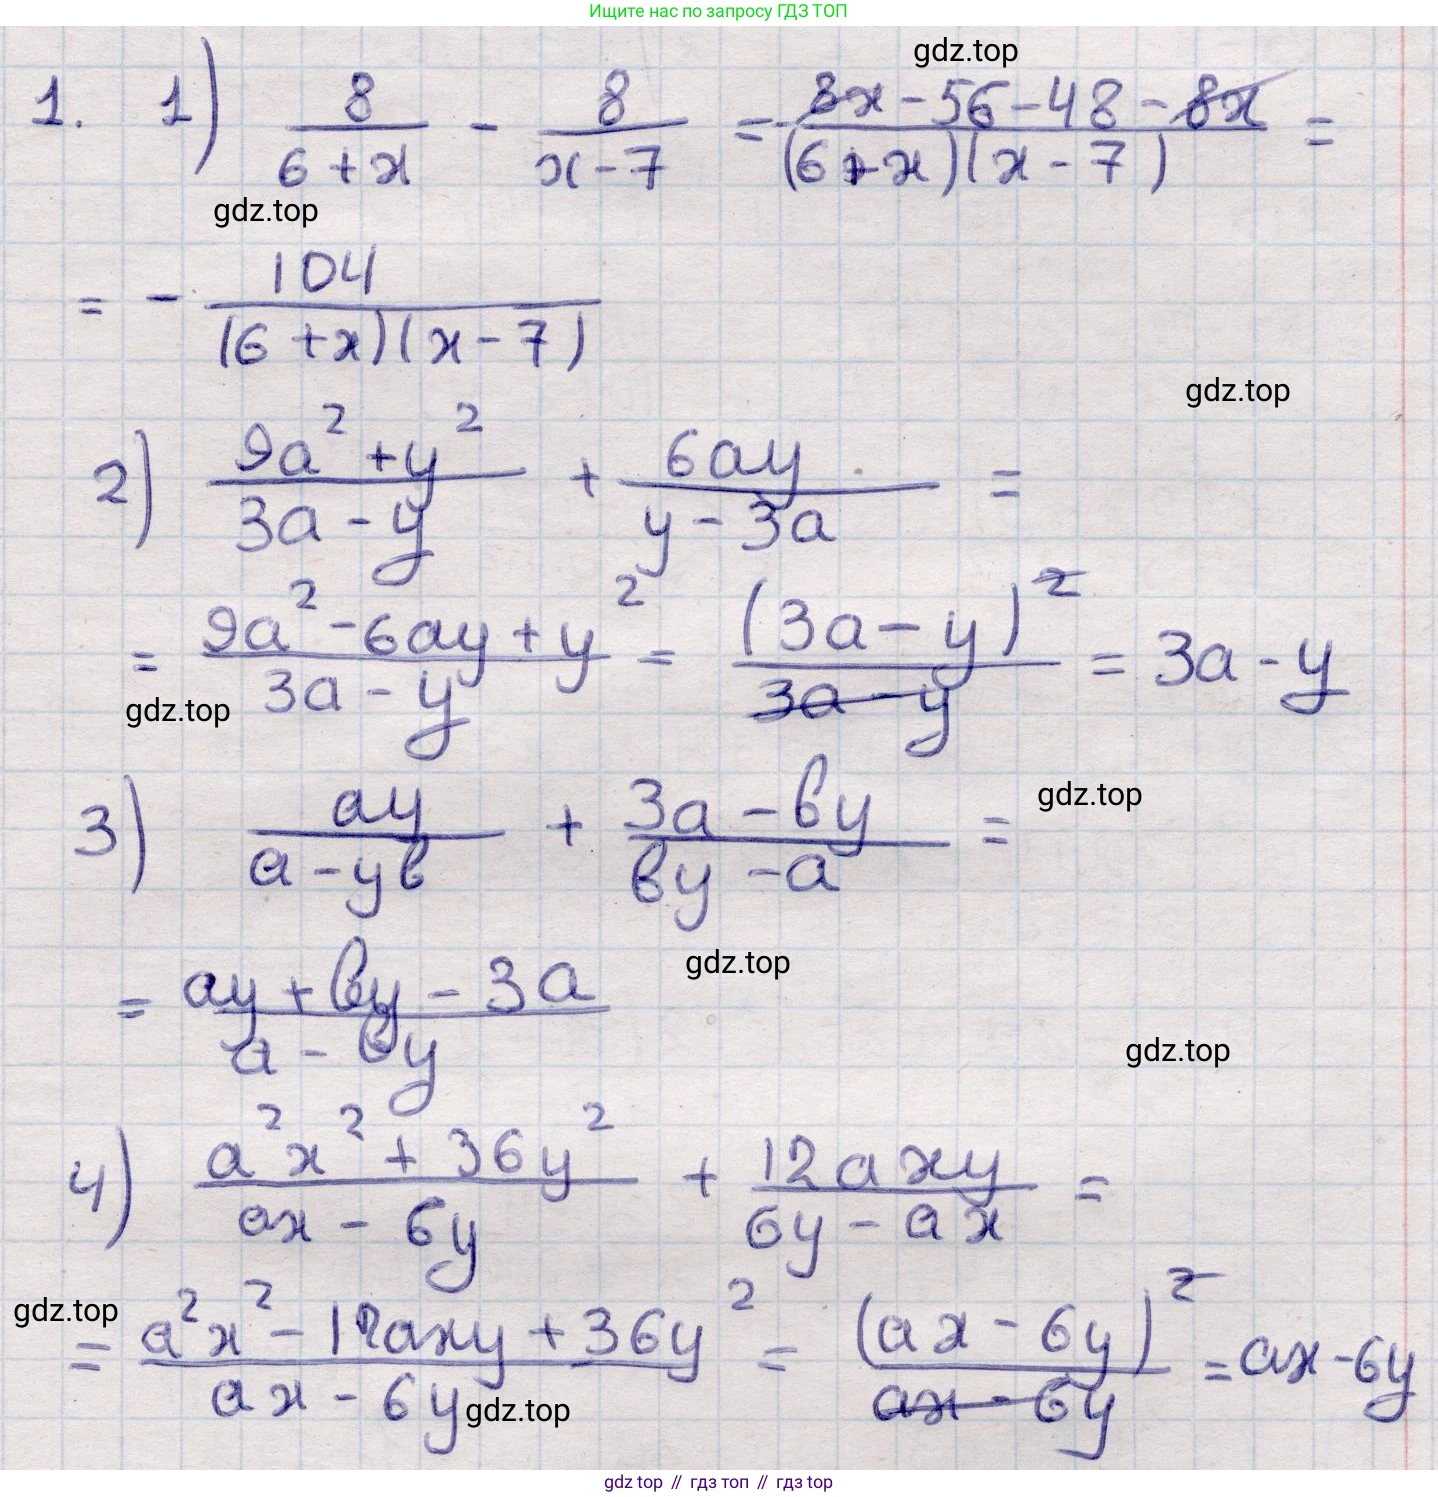 Ищите нас по запросу ГДЗ ТОП
gdz.top
1. 1) 8/(6+x) - 8/(x-7) = (8x-56-48-8x)/((6+x)(x-7)) =
gdz.top
= - 104/((6+x)(x-7))
gdz.top
2) (9a²+y²)/(3a-y) + 6ay/(y-3a) =
= (9a²-6ay+y²)/(3a-y) = (3a-y)²/(3a-y) = 3a-y
gdz.top
gdz.top
3) ay/(a-yв) + (3a-вy)/(вy-a) =
gdz.top
= (ay+вy-3a)/(a-вy)
gdz.top
4) (a²x²+36y²)/(ax-6y) + 12axy/(6y-ax) =
gdz.top
= (a²x²-12axy+36y²)/(ax-6y) = (ax-6y)²/(ax-6y) = ax-6y
gdz.top
gdz top // гдз топ // гдз top